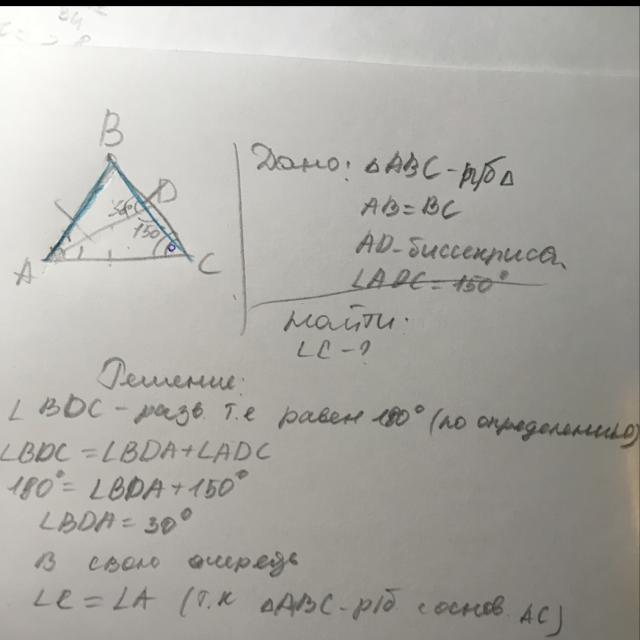 B
D
150°
A
C
Дано: △ABC - р/б △
AB = BC
AD - биссектриса
∠ADC = 150°
Найти:
∠C - ?
Решение:
∠BDC - разв. т.е равен 180° (по определению)
∠BDC = ∠BDA + ∠ADC
180° = ∠BDA + 150°
∠BDA = 30°
В свою очередь
∠C = ∠A (т.к △ABC - р/б с основ. AC)